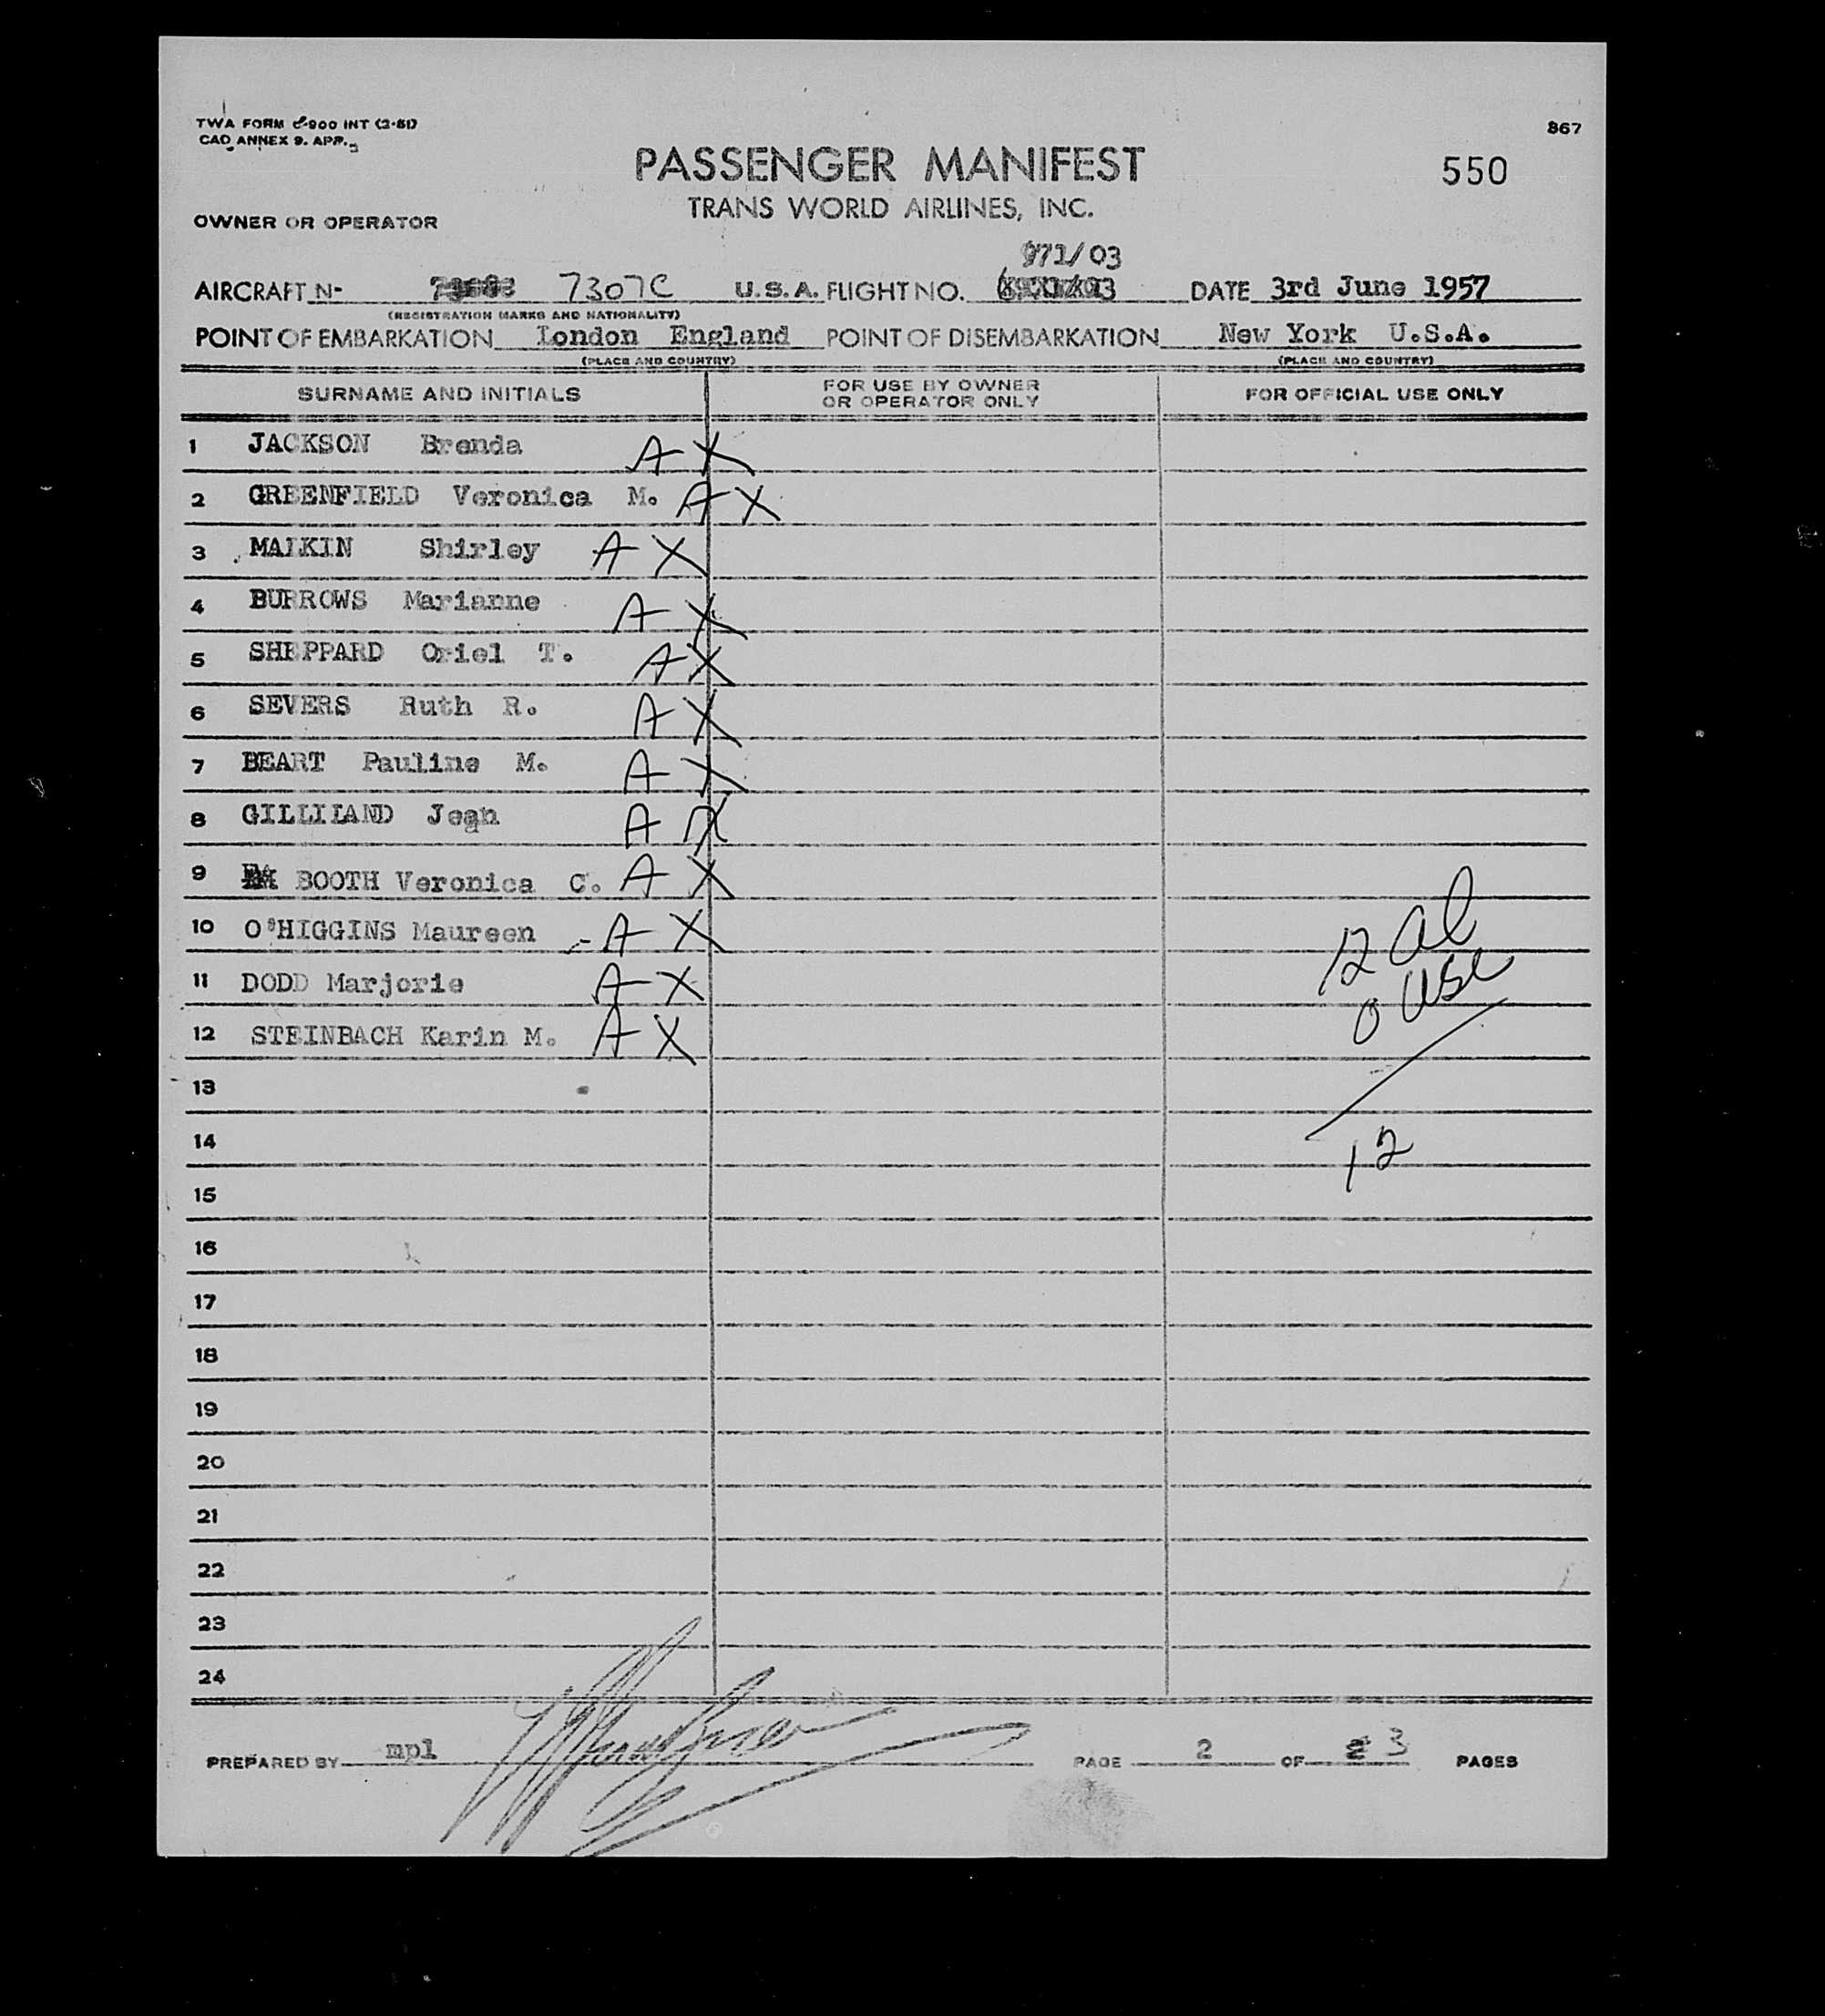 TWA FORM C-900 INT (2-51)
CAO ANNEX 9. APP.
867
PASSENGER MANIFEST
550
TRANS WORLD AIRLINES, INC.
OWNER OR OPERATOR
971/03
AIRCRAFT N- 7307C U.S.A. FLIGHT NO. DATE 3rd June 1957
(REGISTRATION MARKS AND NATIONALITY)
POINT OF EMBARKATION London England POINT OF DISEMBARKATION New York U.S.A.
(PLACE AND COUNTRY) (PLACE AND COUNTRY)
SURNAME AND INITIALS FOR USE BY OWNER OR OPERATOR ONLY FOR OFFICIAL USE ONLY
1 JACKSON Brenda A X
2 GREENFIELD Veronica M. A X
3 MALKIN Shirley A X
4 BURROWS Marianne A X
5 SHEPPARD Oriel T. A X
6 SEVERS Ruth R. A X
7 BEART Pauline M. A X
8 GILLILAND Jean A X
9 BOOTH Veronica C. A X
10 O'HIGGINS Maureen - A X
11 DODD Marjorie A X
12 STEINBACH Karin M. A X
12 al
0 usc
12
13
14
15
16
17
18
19
20
21
22
23
24
PREPARED BY mpl PAGE 2 OF 2 3 PAGES